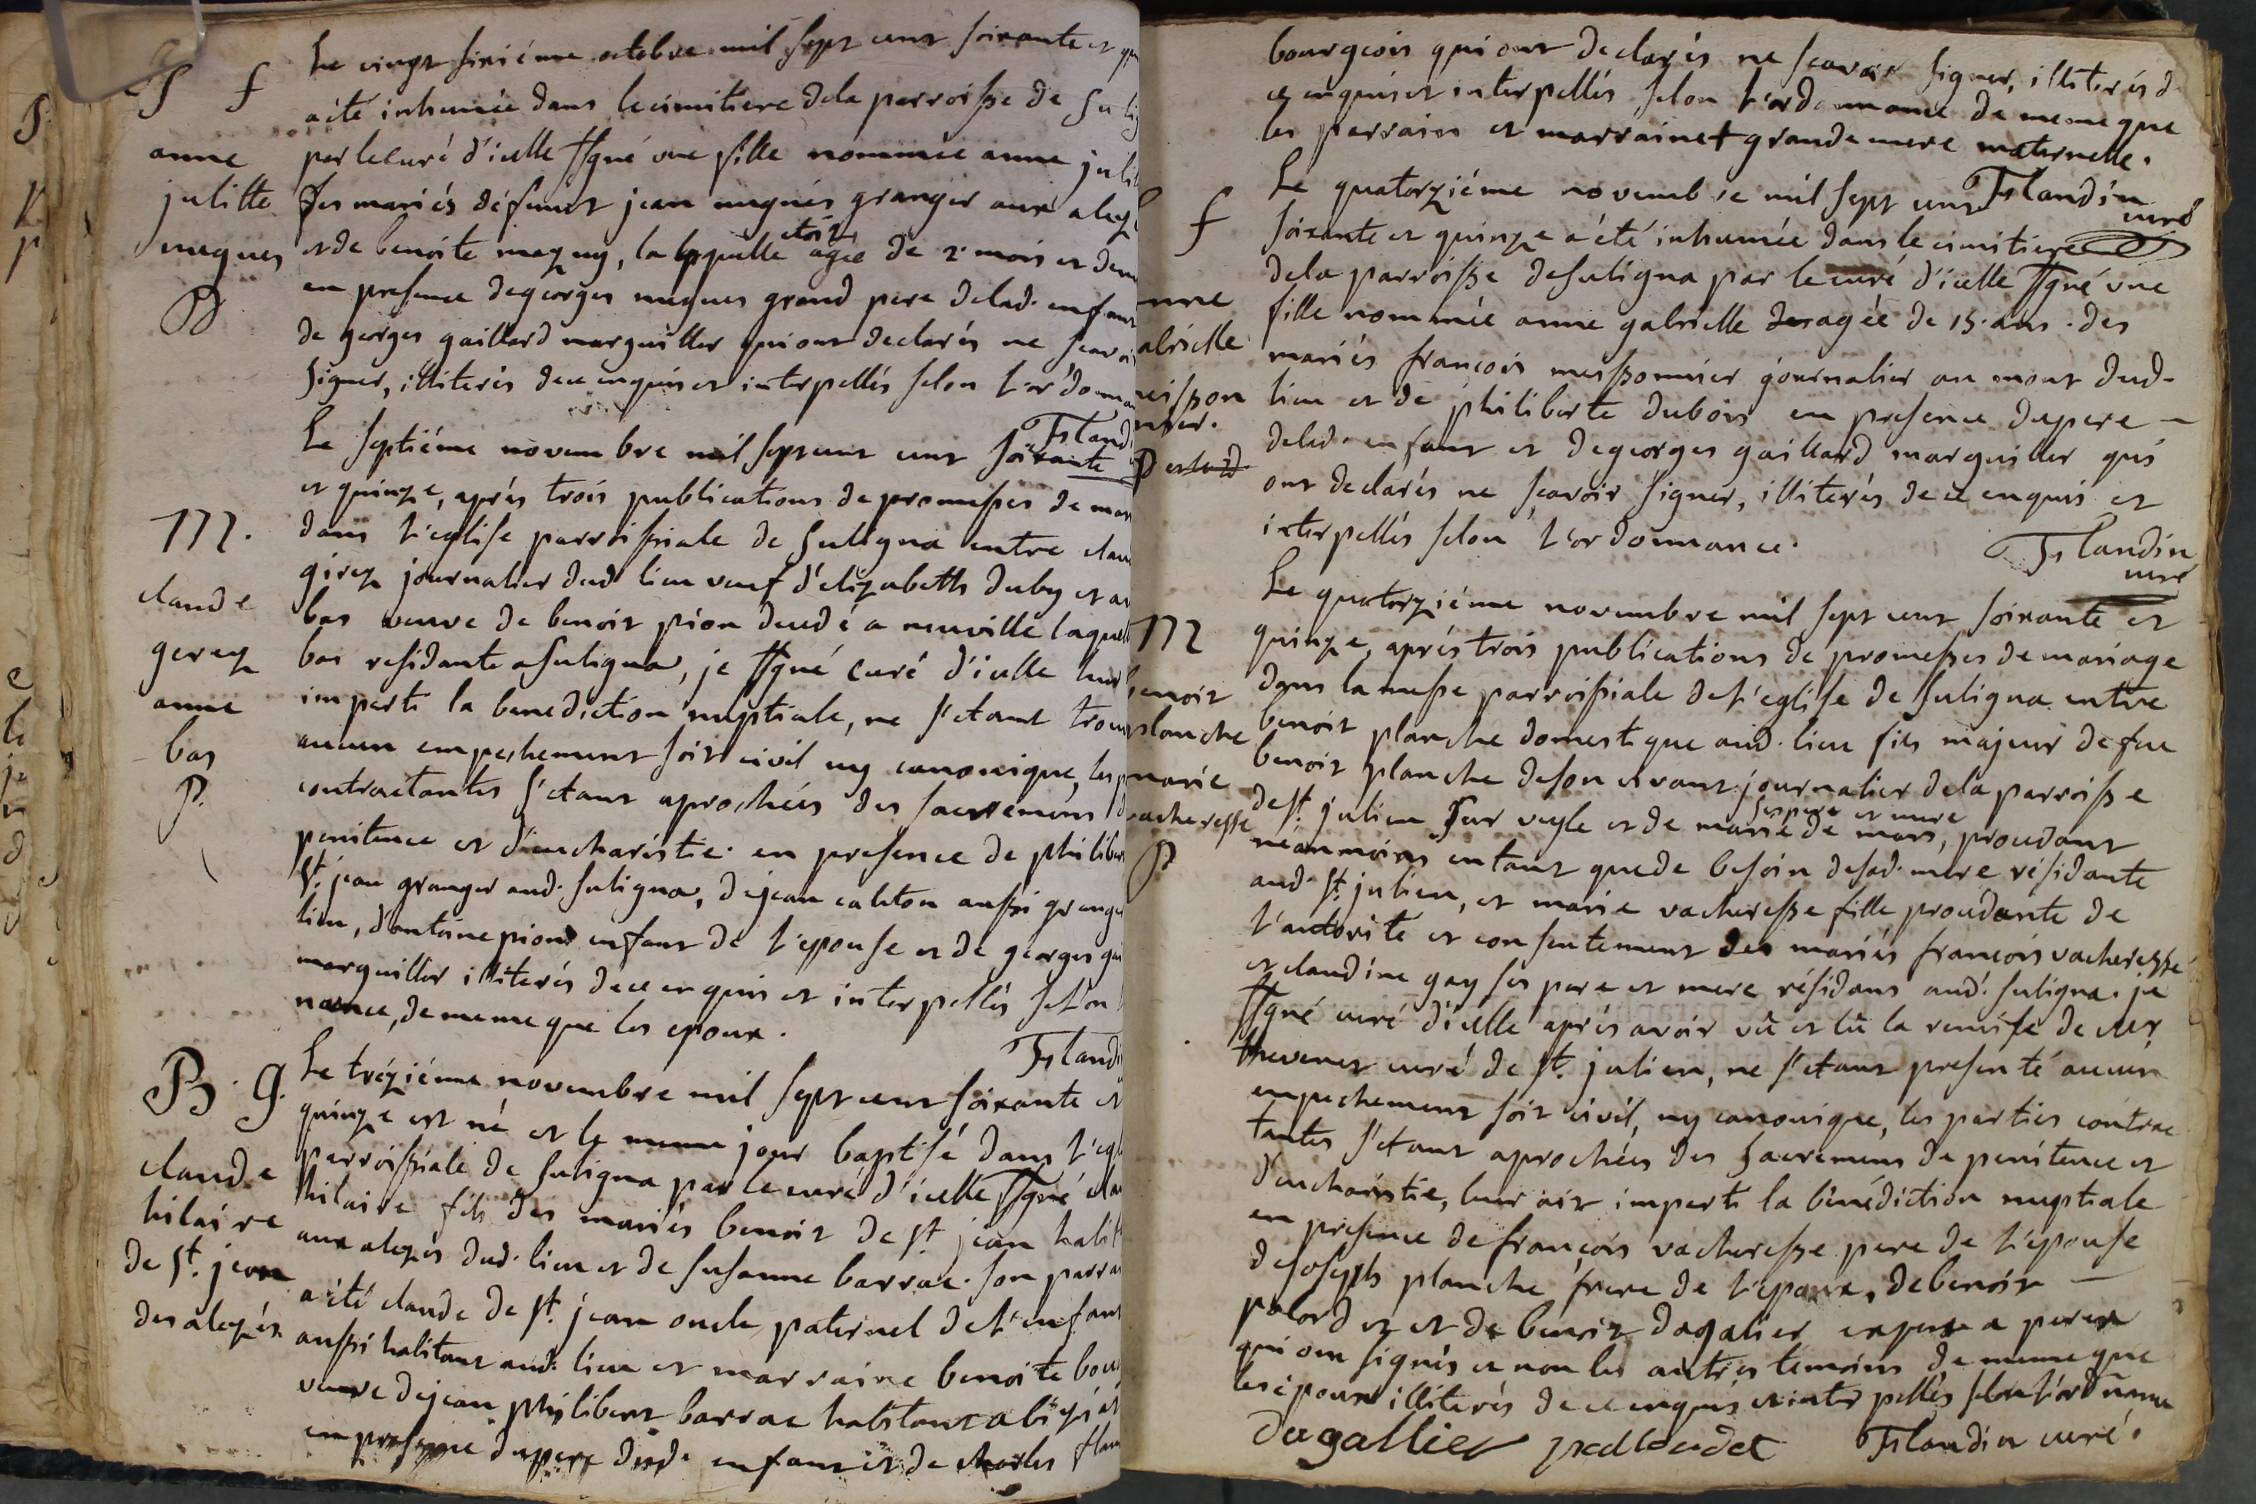 S f
anne
julitte
nugues
Le vingt sixiéme octobre mil sept cent soixante et
a été inhumée dans le cimitiere de la parroisse de
par le curé d'icelle ssgné une fille nommée anne
des mariés défunct jean nugues granger aux
et de benoite mazuy, la laquelle étoit agée de 2. mois et
en presence de georges nugues grand pere de lad. enfant
de georges gaillard marguiller qui ont declarés ne scavoir
signer, illiterés de ce enquis et interpellés selon l'ordonna
Flandi
M.
claude
gerex
anne
bas
P.
Le septiéme novembre mil sept cent cent soixante
et quinze, aprés trois publications de promesses de mar
dans l'eglise parroissiale de suligna entre clau
girex journalier dud lieu veuf d'elizabeth duby et
bas veuve de benoit pion decedé a neuville laquelle
bas residante a suligna, je ssgné curé d'icelle leur
imparti la benediction nuptiale, ne s'etant trou
aucun empechement soit civil ny canonique, les
contractantes s'etant aprochées des sacremens
penitence et d'eucharistie. en presence de philiber
St. jean granger aud. suligna, de jean caleton aussi grange
lieu, d'antoine pion enfant de l'epouse et de georges
marguiller illiterés de ce enquis et interpellés selon
nance, de meme que les epoux.
Flandi
B. g.
claude
hilaire
de St. jean
des alezés
Le trèziéme novembre mil sept cent soixante et
quinze est né et le meme jour baptisé dans l'egl
parroissiale de suligna par le curé d'icelle ssgné cla
hilaire fils des mariés benoit de st. jean habit
aux alezés dud. lieu et de susanne barrac. son parra
a été claude de st. jean oncle paternel de l'enfant
aussi habitant aud. lieu et marraine benoite
veuve de jean philibert barrac habitant
en presence du pere dud. enfant et de charles flan
bourgeois qui ont declarés ne scavoir signer, illiterés d
ce enquis et interpellés selon l'ordonnance de meme que
les parrain et marraine + grande mere maternelle.
Flandin
curé
f
nne
abrielle
meisson
nier.
P
Le quatorziéme novembre mil sept cent
soixante et quinze a été inhumée dans le cimitiere
de la parroisse de suligna par le curé d'icelle ssgné une
fille nommée anne gabrielle agée de 15. ans. des
mariés francois meissonnier journalier au mont dud.
lieu et de philiberte dubois en presence du pere —
de lad. enfant et de georges gaillard marguiller qui
ont declarés ne scavoir signer, illiterés de ce enquis et
interpellés selon l'ordonnance.
Flandin
curé
M
benoit
planche
marie
vacheresse
P
Le quatorziéme novembre mil sept cent soixante et
quinze, aprés trois publications de promesses de mariage
dans la messe parroissiale de l'eglise de suligna entre
benoit planche domestique aud. lieu fils majeur de feu
benoit planche de son vivant journalier de la parroisse
de st. julien sur veyle et de marie de mars, ses pere et mere procedant
néanmoins en tant que de besoin de sad. mere résidante
aud. st. julien, et marie vacheresse fille procedante de
l'autorité et consentement des mariés francois vacheresse
et claudine gay ses pere et mere résidans aud. suligna. je
ssgné curé d'icelle aprés avoir vû et lû la remise de mr
thevenet curé de st. julien, ne s'etant presenté aucun
empechement soit civil, ny canonique, les parties contrac
tantes s'etant aprochées des sacremens de penitence et
d'eucharistie, leur ait imparti la bénédiction nuptiale
en presence de francois vacheresse pere de l'épouse
de joseph planche frere de l'epoux, de benoit —
et de benoit dagalier
qui ont signés et non les autres temoins de meme que
les époux illiterés de ce enquis et interpellés selon l'ordonnance
dagallier Flandin curé.